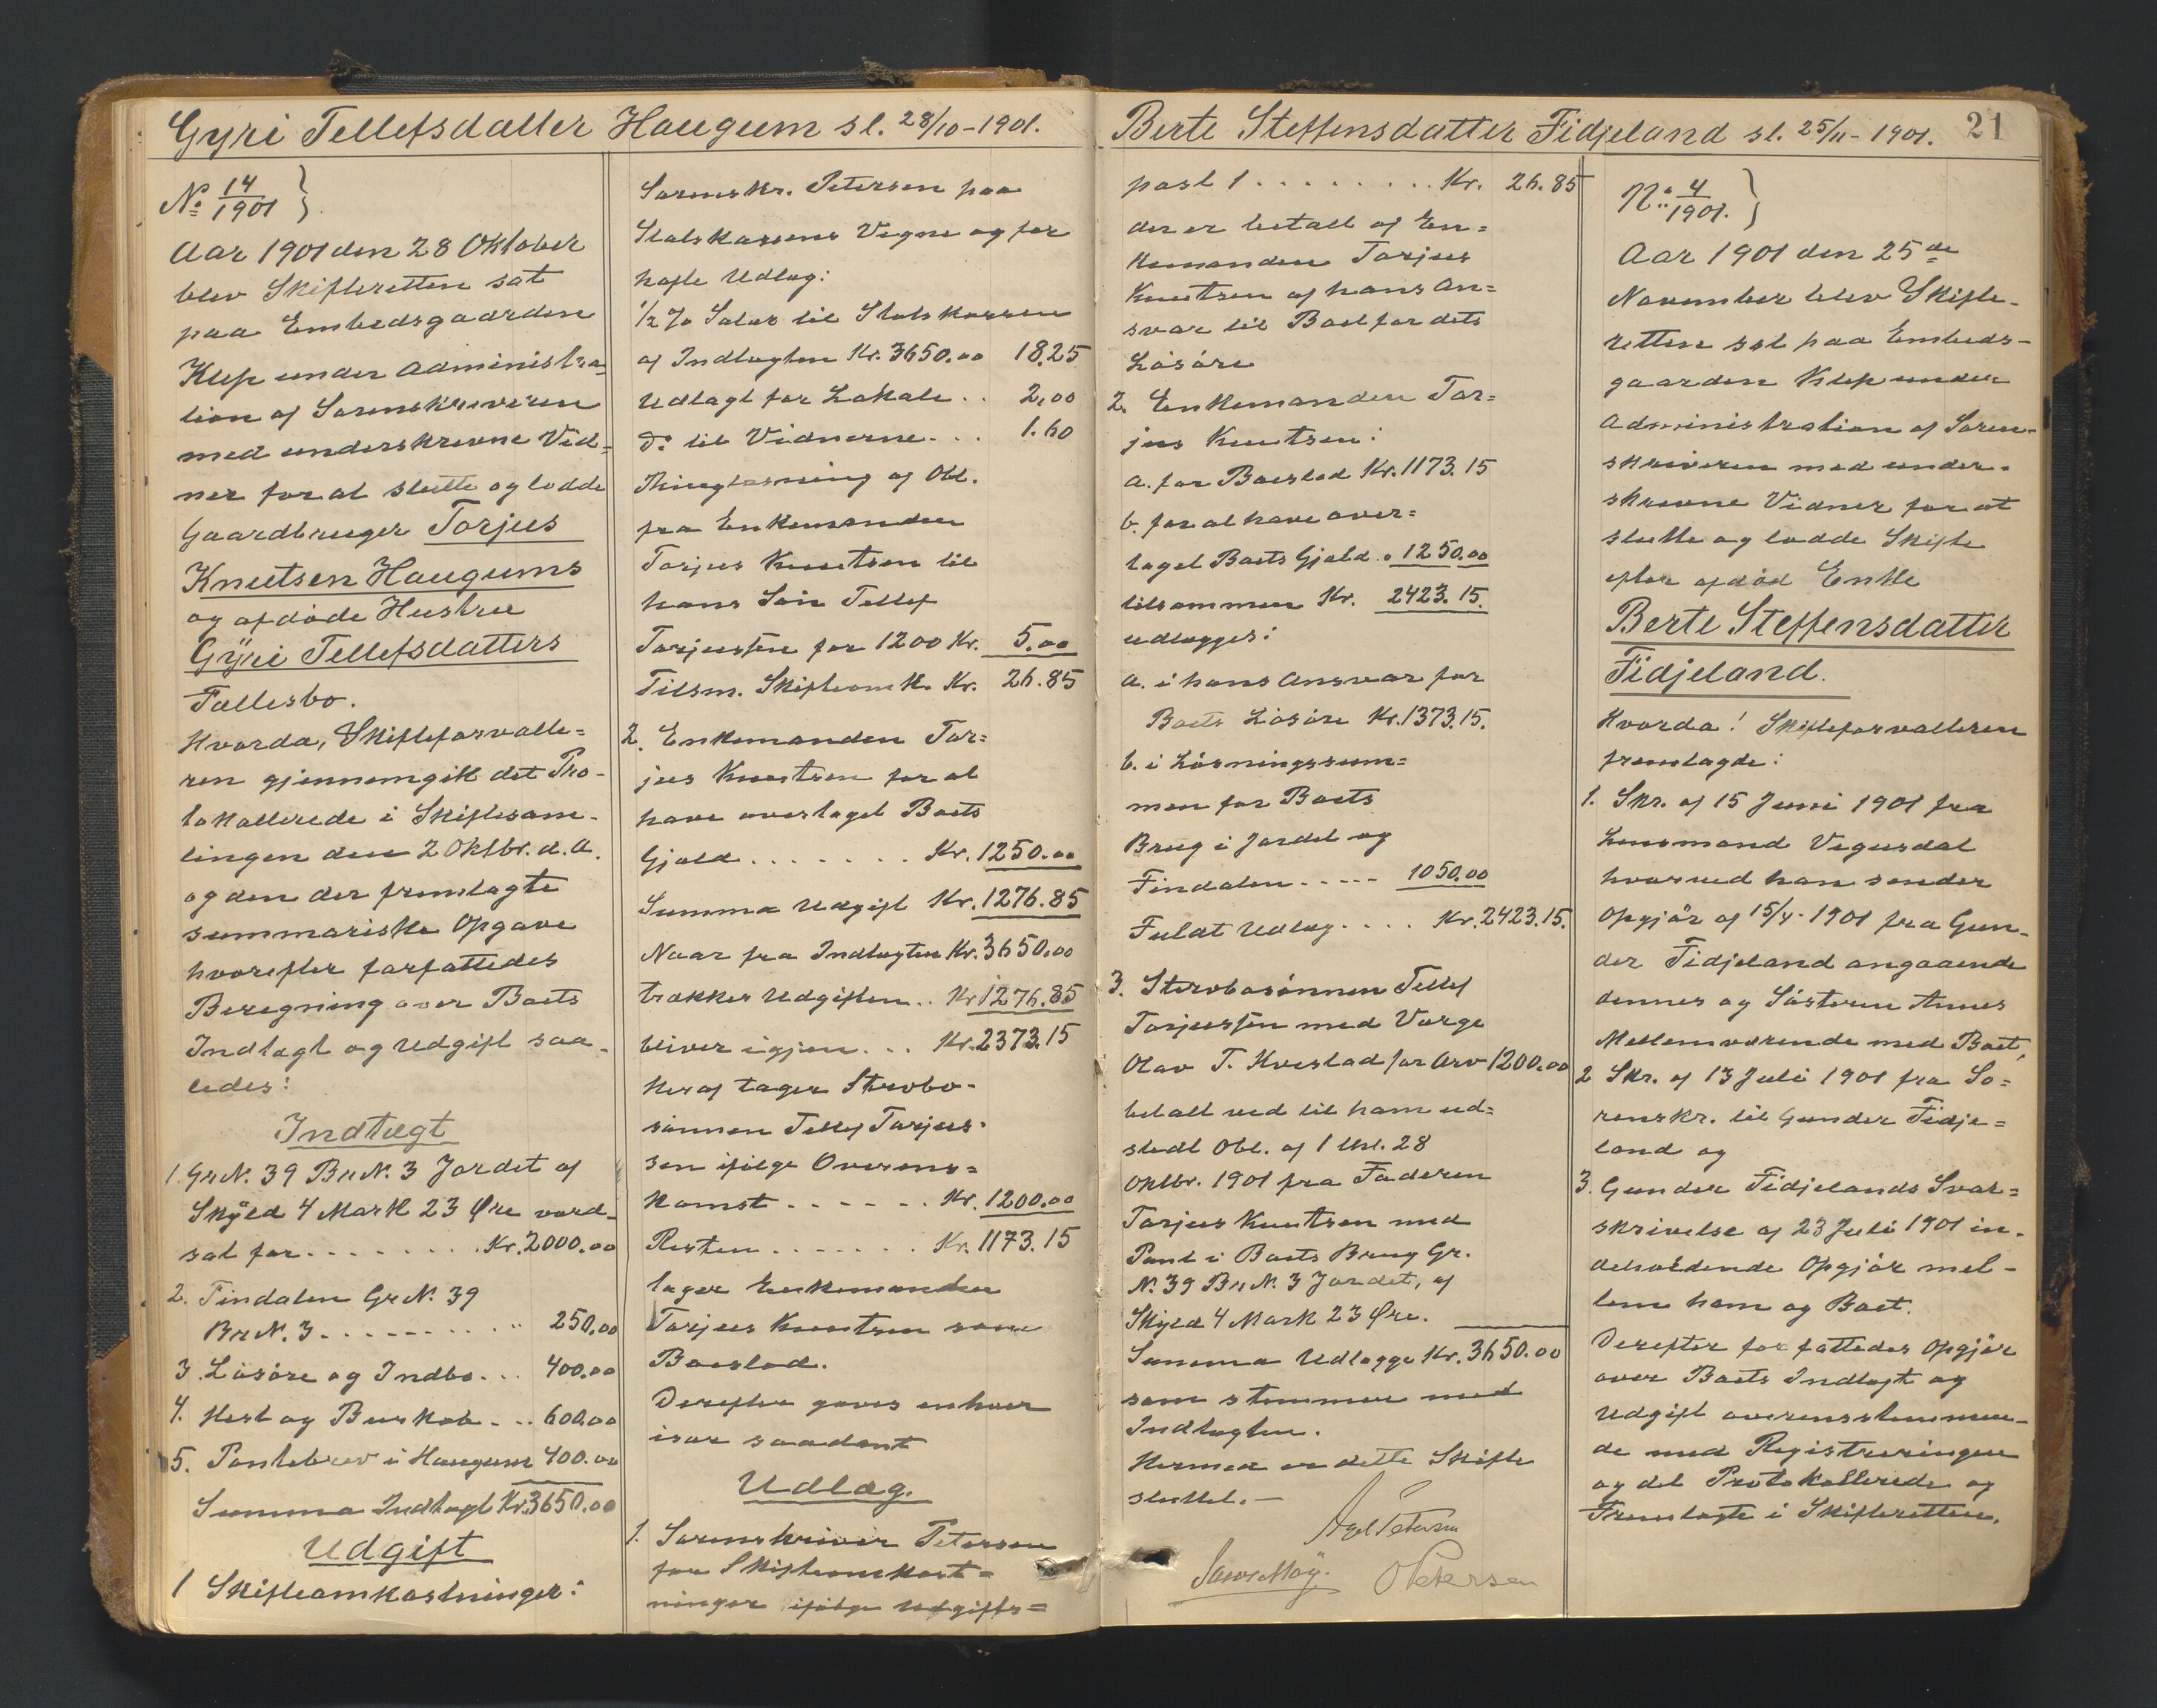 Gyri Tellefsdatter Haugum sl. 28/10-1901.
No 14/1901 }
Aar 1901 den 28 Oktober
blev Skifteretten sat
paa Embedsgaarden
Klep under Administra-
tion af Sorenskriveren
med underskrevne Vid-
ner for at slutte og lodde
Gaardbruger Torjus
Knutsen Haugums
og afdøde Hustru
Gyri Tellefsdatters
Fællesbo.
Hvorda, Skifteforvalte=
ren gjennemgik det Pro-
tokollerede i Skiftesam-
lingen den 2 Oktbr. d. A.
og den der fremlagte
summariske Opgave
hvorefter forfattedes
Beregning over Boets
Indtægt og Udgift saa-
ledes:
Indtægt
1. Gr.N. 39 Br.N. 3 Jordet af
Skyld 4 Mark 23 Øre vurd-
sat for . . . . . . . Kr. 2000.00
2. Findalen Gr.N. 39
Br.N. 3 . . . . . . . . " 250.00
3. Løsøre og Indbo . . . 400.00
4. Hest og Buskab . . . 600.00
5. Pantebrev i Haugum 400.00
Summa Indtægt Kr. 3650.00
Udgift
1 Skifteomkostninger:
Sorenskr. Petersen paa
Statskassens Vegne og for
hafte Udlæg:
1/2 % Salær til Statskassen
af Indtægten Kr. 3650.00 18.25
Udlagt for Lokale . . 2.00
Do til Vidnerne . . . 1.60
Thinglæsning af Obl.
fra Enkemanden
Torjus Knutsen til
hans Søn Tellef
Torjussen for 1200 Kr. 5.00
Tilsm. Skifteomk. Kr. 26.85
2. Enkemanden Tor=
jus Knutsen for at
have overtaget Boets
Gjæld . . . . . . . Kr. 1250.00
Summa Udgift Kr. 1276.85
Naar fra Indtægten Kr. 3650.00
trækkes Udgiften . . Kr 1276.85
bliver igjen . . . Kr. 2373.15
Heraf tager Stervbo-
sønnen Tellef Torjus-
sen ifølge Overens=
komst . . . . . . Kr. 1200.00
Resten . . . . . . . Kr. 1173.15
tager Enkemanden
Torjus Knutsen som
Boeslod.
Derefter gaves enhver
især saadant
Udlæg.
1. Sorenskriver Petersen
for Skifteomkost=
ninger ifølge Udgifts=
Berte Steffensdatter Fidjeland sl. 25/11-1901. 21
post 1 . . . . . . . . . Kr. 26.85
der er betalt af En=
kemanden Torjus
Knutsen af hans An=
svar til Boet for dets
Løsøre
2. Enkemanden Tor=
jus Knutsen:
a. for Boeslod Kr. 1173.15
b. for at have over=
taget Boets Gjæld " 1250.00
tilsammen Kr. 2423.15.
udlægges:
a. i hans Ansvar for
Boets Løsøre Kr. 1373.15.
b. i Løsningssum=
men for Boets
Brug i Jordet og
Findalen . . . . . 1050.00
Fuldt Udlæg . . . . Kr. 2423.15.
3. Stervbosønnen Tellef
Torjussen med Værge
Olav T. Kvestad for Arv 1200.00
betalt ved til ham ud=
stedt Obl. af 1 Okt. 28
Oktbr. 1901 fra Faderen
Torjus Knutsen med
Pant i Boets Brug Gr.
N. 39 Br.N. 3 Jordet, af
Skyld 4 Mark 23 Øre.
Summa Udlægge Kr. 3650.00
som stemmer med
Indtægten.
Hermed er dette Skifte
sluttet. —
Axel Petersen
O Petersen
No. 4/1901. }
Aar 1901 den 25de
November blev Skifte-
retten sat paa Embeds-
gaarden Klep under
Administration af Soren-
skriveren med under-
skrevne Vidner for at
slutte og lodde Skifte
efter afdød Enke
Berte Steffensdatter
Fidjeland.
Hvorda! Skifteforvalteren
fremlagde:
1. Skr. af 15 Juni 1901 fra
Lensmand Vegusdal
hvorved han sender
Opgjør af 15/4-1901 fra Gun-
der Fidjeland angaaende
dennes og Søsteren Annes
Mellemværende med Boet,
2 Skr. af 13 Juli 1901 fra So=
renskr. til Gunder Fidje=
land og
3. Gunder Fidjelands Svar=
skrivelse af 23 Juli 1901 in-
deholdende Opgjør mel-
lem ham og Boet.
Derefter forfattedes Opgjør
over Boets Indtægt og
Udgift overensstemmen-
de med Registreringen
og det Protokollerede og
Fremlagte i Skifteretten.